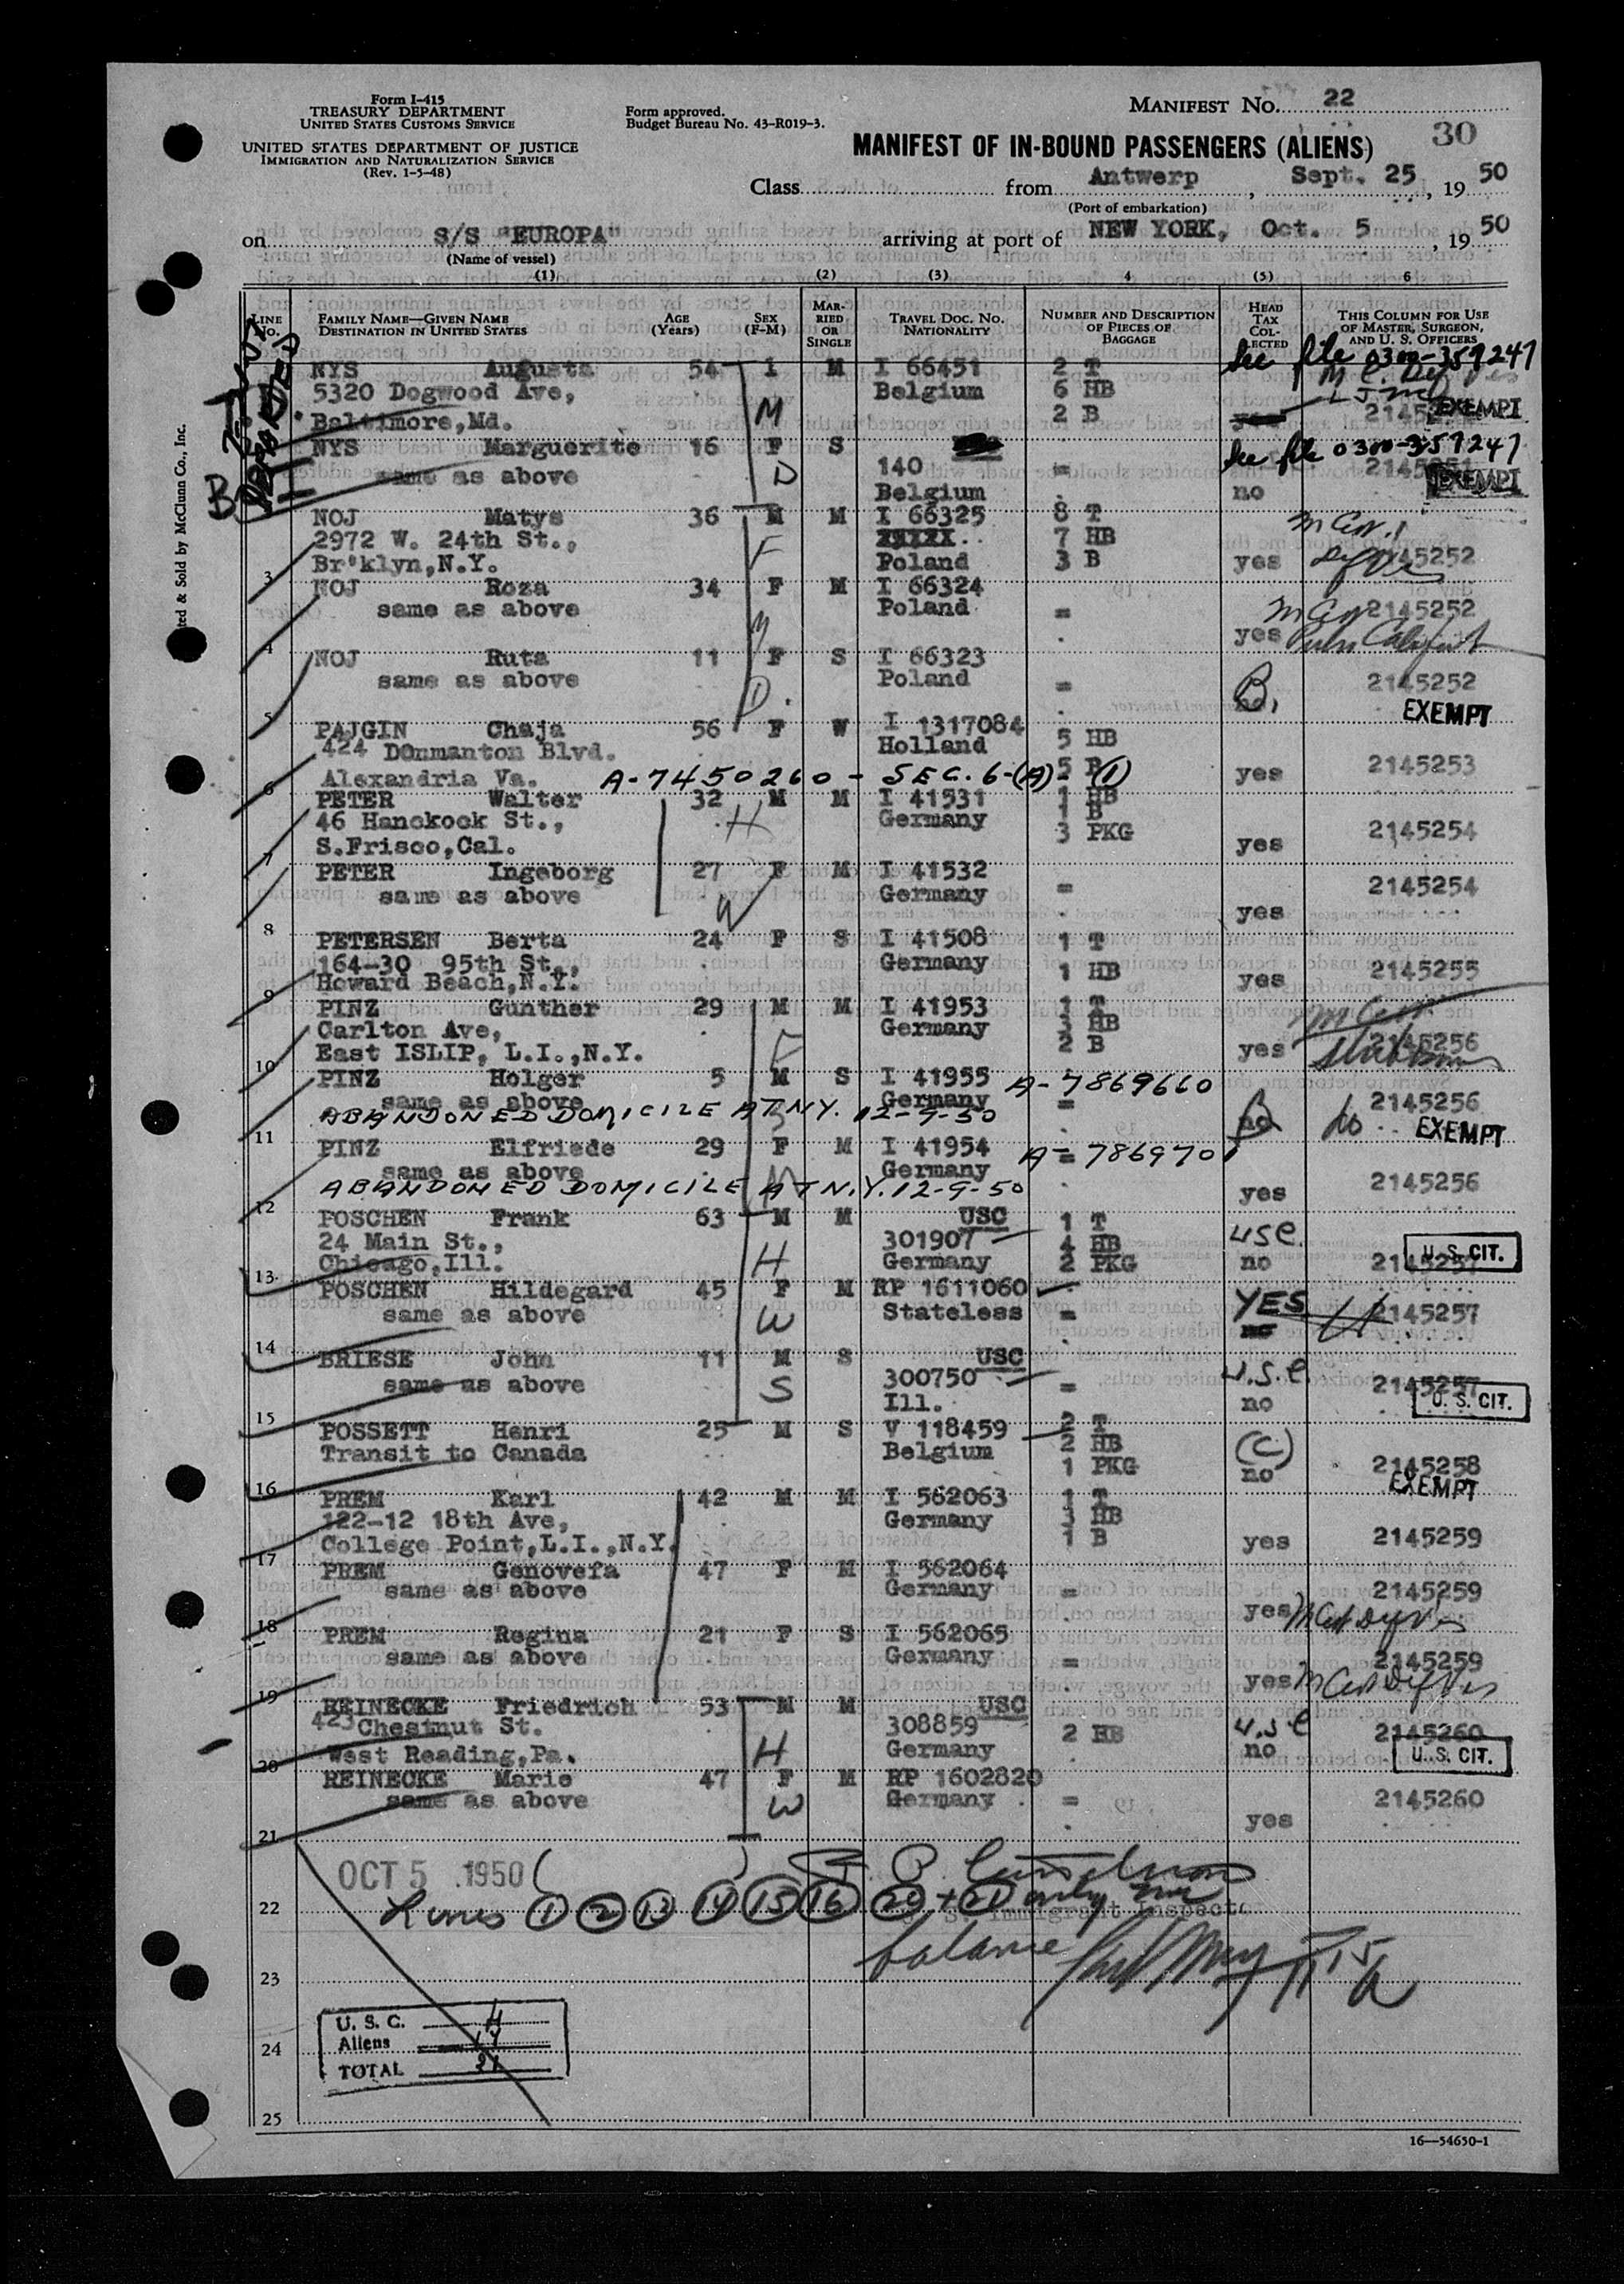 Form I-415
TREASURY DEPARTMENT
UNITED STATES CUSTOMS SERVICE
UNITED STATES DEPARTMENT OF JUSTICE
IMMIGRATION AND NATURALIZATION SERVICE
(Rev. 1-5-48)
Form approved.
Budget Bureau No. 43-R019-3.
MANIFEST No. 22
30
MANIFEST OF IN-BOUND PASSENGERS (ALIENS)
Class from Antwerp, Sept. 25, 1950
(Port of embarkation)
on S/S "EUROPA" arriving at port of NEW YORK, Oct. 5, 1950
(Name of vessel)
(1) (2) (3) 4 (5) 6
LINE No. FAMILY NAME—GIVEN NAME DESTINATION IN UNITED STATES AGE (Years) SEX (F-M) MARRIED OR SINGLE TRAVEL DOC. NO. NATIONALITY NUMBER AND DESCRIPTION OF PIECES OF BAGGAGE HEAD TAX COLLECTED THIS COLUMN FOR USE OF MASTER, SURGEON, AND U. S. OFFICERS
See file 0300-359247
NYS Augusta 54 M I 66451 2 T
5320 Dogwood Ave, Belgium 6 HB
Baltimore,Md. M 2 B EXEMPT
NYS Marguerite 16 F S See file 0300-359247
same as above D 140 = 2145251
Belgium no EXEMPT
NOJ Matys 36 M M I 66325 8 T
2972 W. 24th St., F 7 HB
3 Br'klyn,N.Y. Poland 3 B yes 2145252
NOJ Roza 34 F M I 66324
same as above Poland = 2145252
4 M yes
NOJ Ruta 11 F S I 66323
same as above Poland = 2145252
5 D. B, no EXEMPT
PAJGIN Chaja 56 F W I 1317084 5 HB
424 DOnmanton Blvd. Holland 5 B 2145253
6 Alexandria Va. A-7450260 - SEC. 6-(A)-(1) yes
PETER Walter 32 M M I 41531 1 HB
46 Hanckock St., H Germany 1 B
7 S.Frisco,Cal. 3 PKG yes 2145254
PETER Ingeborg 27 F M I 41532
same as above Germany = 2145254
8 W yes
PETERSEN Berta 24 F S I 41508 1 T
164-30 95th St., Germany 1 HB 2145255
9 Howard Beach,N.Y. yes
PINZ Gunther 29 M M I 41953 1 T
Carlton Ave, Germany 3 HB
10 East ISLIP, L.I.,N.Y. F 2 B yes 2145256
PINZ Holger 5 M S I 41955 A-7869660
same as above Germany = 2145256
11 ABANDONED DOMICILE AT N.Y. 12-9-50 no EXEMPT
PINZ Elfriede 29 F M I 41954 A-7869701
same as above Germany = 2145256
12 ABANDONED DOMICILE AT N.Y. 12-9-50 yes
POSCHEN Frank 63 M M USC 1 T
24 Main St., 301907 4 HB USC.
13 Chicago,Ill. H Germany 2 PKG no 2145257 U. S. CIT.
POSCHEN Hildegard 45 F M RP 1611060
same as above W Stateless = YES 2145257
14 no
BRIESE John 11 M S USC
same as above S 300750 = U.S.C. 2145257
15 Ill. no U. S. CIT.
POSSETT Henri 25 M S V 118459 2 T
Transit to Canada Belgium 2 HB (C)
16 1 PKG no 2145258 EXEMPT
PREM Karl 42 M M I 562063 1 T
122-12 18th Ave, Germany 3 HB
17 College Point,L.I.,N.Y. 1 B yes 2145259
PREM Genovefa 47 F M I 562064
same as above Germany = 2145259
18 yes
PREM Regina 21 F S I 562065
same as above Germany = 2145259
19 yes
REINECKE Friedrich 53 M M USC
423 Chestnut St. 308859 2 HB U.S.C 2145260
20 West Reading,Pa. H Germany no U. S. CIT.
REINECKE Marie 47 F M RP 1602820
same as above W Germany = 2145260
21 yes
OCT 5 1950
22 Lines 1 2 13 14 15 16 20 + 21 only
Immigrant Inspector
balance
23
U. S. C. 4
24 Aliens 17
TOTAL 21
25
16—54650-1
ted & Sold by McClunn Co., Inc.